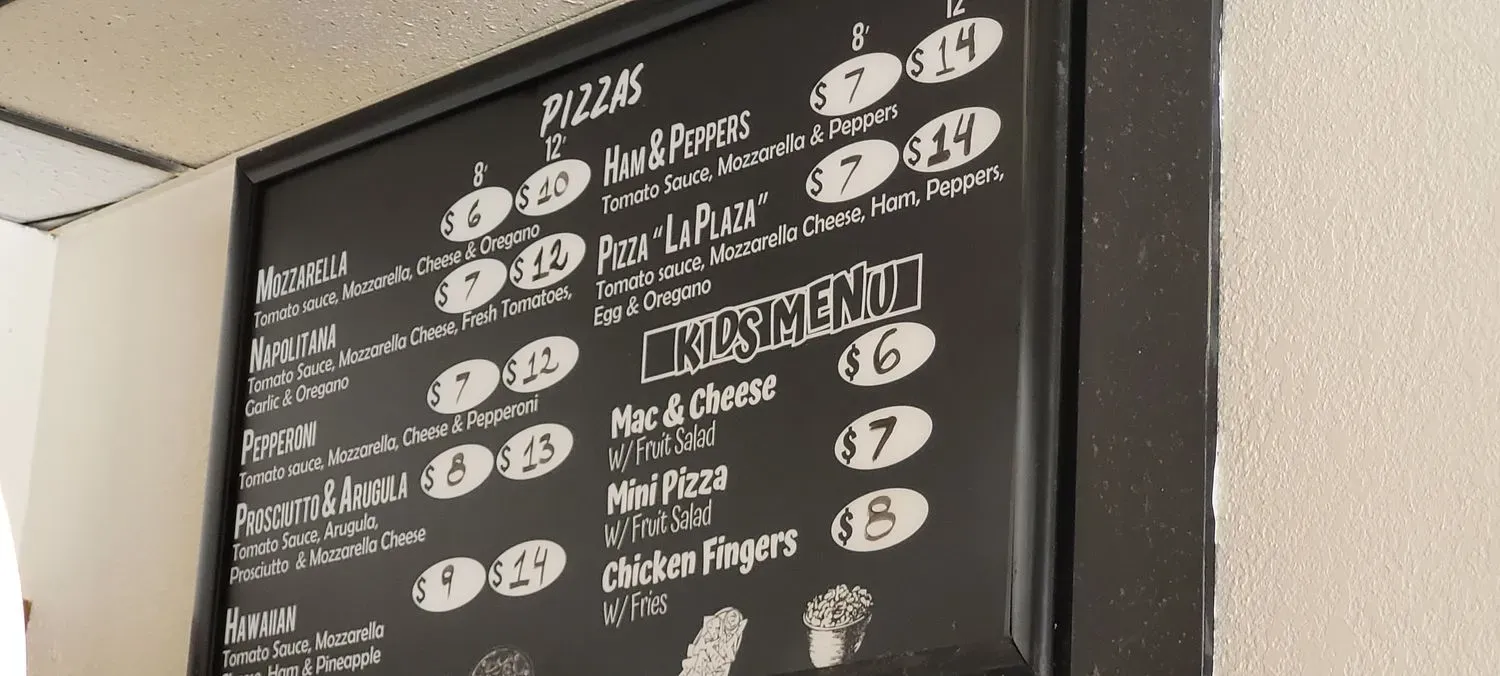 PIZZAS
8' 12'
MOZZARELLA $ 6 $ 10
Tomato sauce, Mozzarella, Cheese & Oregano
NAPOLITANA $ 7 $ 12
Tomato Sauce, Mozzarella Cheese, Fresh Tomatoes,
Garlic & Oregano
PEPPERONI $ 7 $ 12
Tomato sauce, Mozzarella, Cheese & Pepperoni
PROSCIUTTO & ARUGULA $ 8 $ 13
Tomato Sauce, Arugula,
Prosciutto & Mozzarella Cheese
HAWAIIAN $ 9 $ 14
Tomato Sauce, Mozzarella
Ham & Pineapple
8' 12
HAM & PEPPERS $ 7 $ 14
Tomato Sauce, Mozzarella & Peppers
PIZZA "LA PLAZA" $ 7 $ 14
Tomato sauce, Mozzarella Cheese, Ham, Peppers,
Egg & Oregano
KIDS MENU
Mac & Cheese $ 6
W/ Fruit Salad
Mini Pizza $ 7
W/ Fruit Salad
Chicken Fingers $ 8
W/ Fries